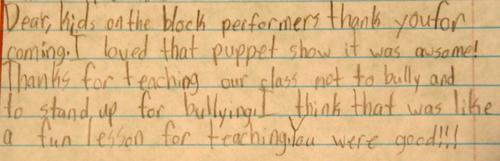 Dear, kids on the block performers thank you for
coming. I loved that puppet show it was awsome!
Thanks for teaching our class not to bully and
to stand up for bullying. I think that was like
a fun lesson for teaching. You were good!!!